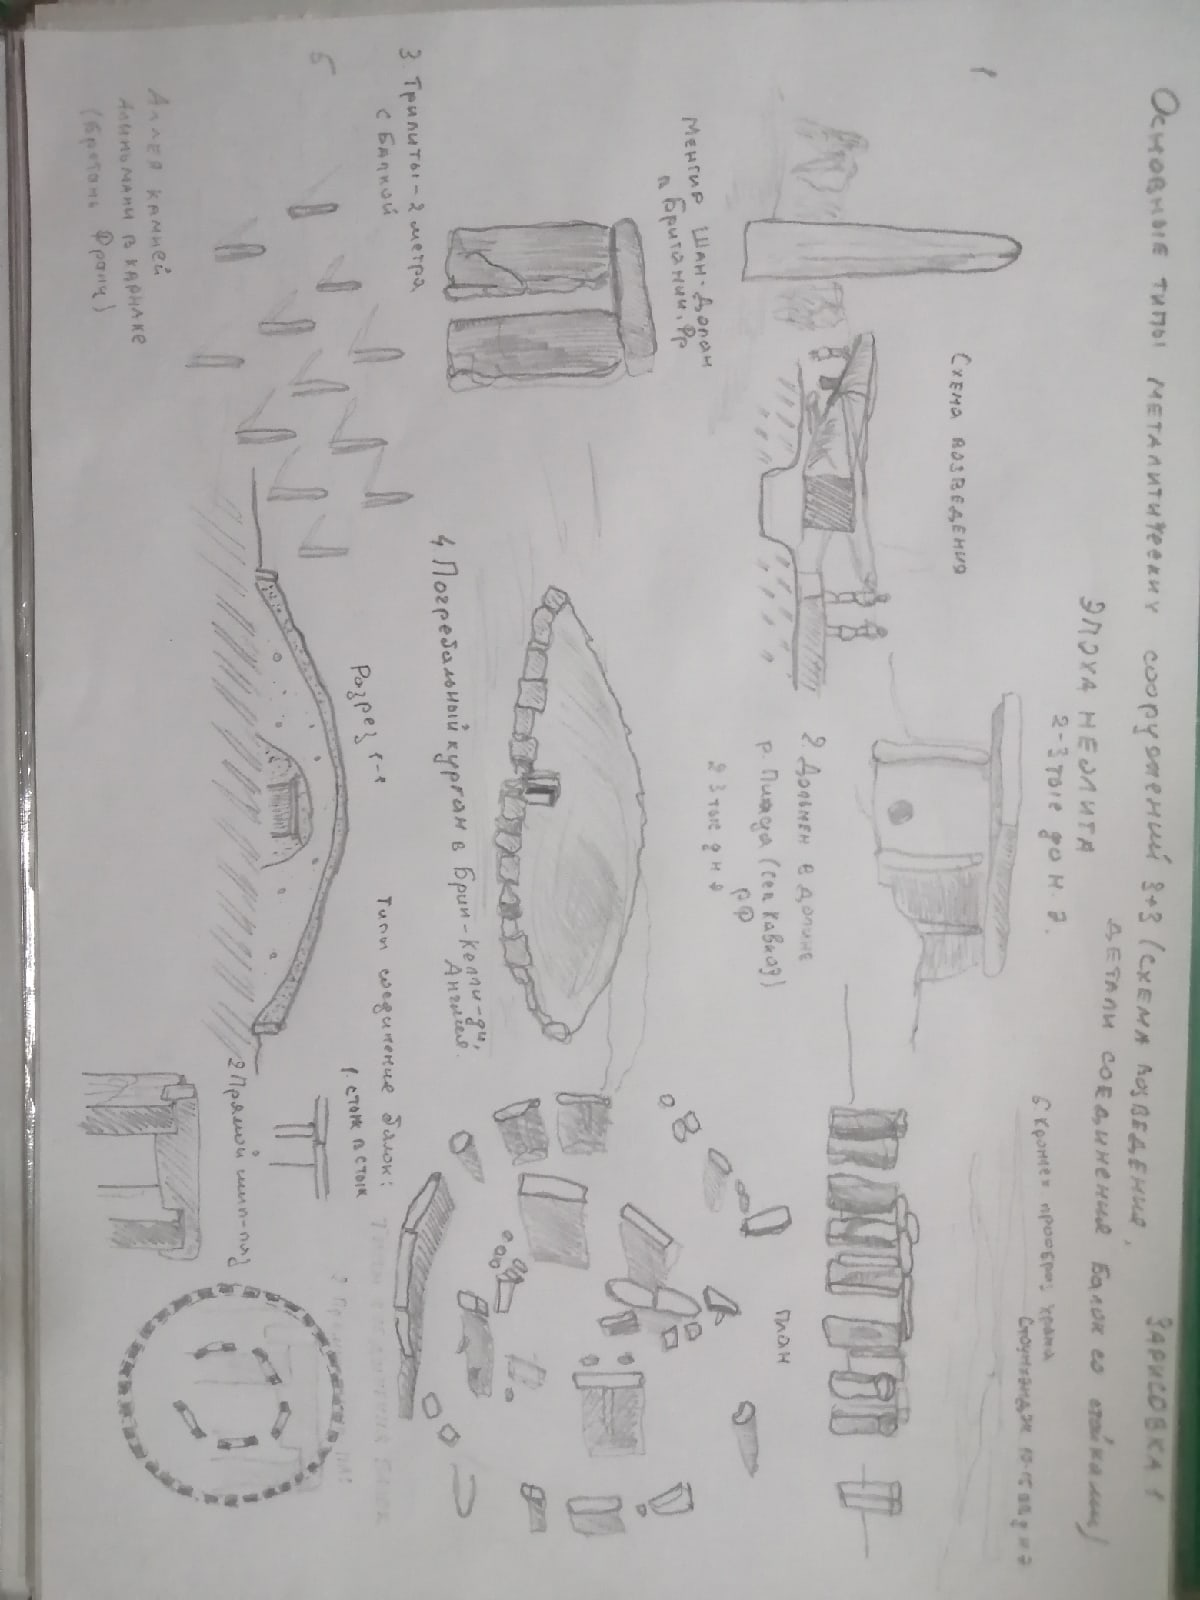 ЗАРИСОВКА 1
Основные типы металитических сооружений 3+3 (схема возведения,
детали соединения балок со стойками)
ЭПОХА НЕОЛИТА
2-3 тыс до н. э.
1
Схема возведения
Менгир Шан-Долан
в Британии, Фр
2. Дольмен в долине
р. Пшада (сев кавказ)
РФ
2 3 тыс д н э
6 Кромлех прообраз храма
Стоунхендж
план
3. Трилиты - 2 метра
с балкой
4. Погребальный курган в Брин-Келли-ди,
Англия.
Разрез 1-1
5
Аллея камней
алиньмани в карнаке
(Бретань Франц)
Типы соединение балок:
1. стык в стык
2 Прямой шип-паз